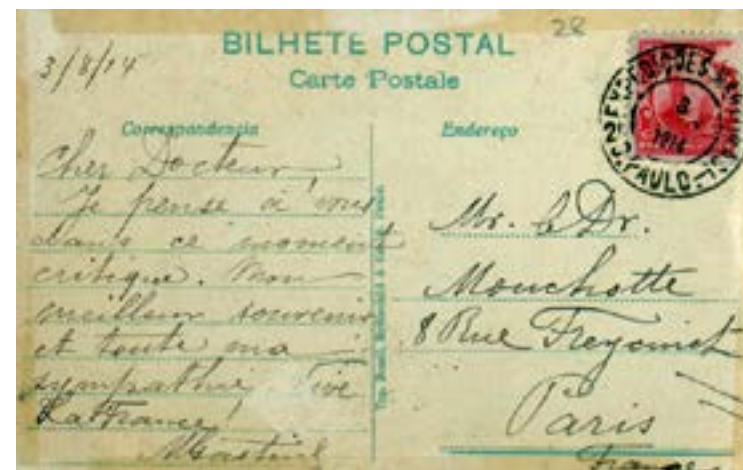 28
BILHETE POSTAL
3/8/14
Carte Postale
EXPEDIÇÕES
8
1914
S. PAULO
Correspondencia
Cher Docteur,
Je pense à vous
dans ce moment
critique. Mon
meilleur souvenir
et toute ma
sympathie, Vive
La France!
Endereço
Mr. le Dr.
Mouchotte
8 Rue Freycinet
Paris
France